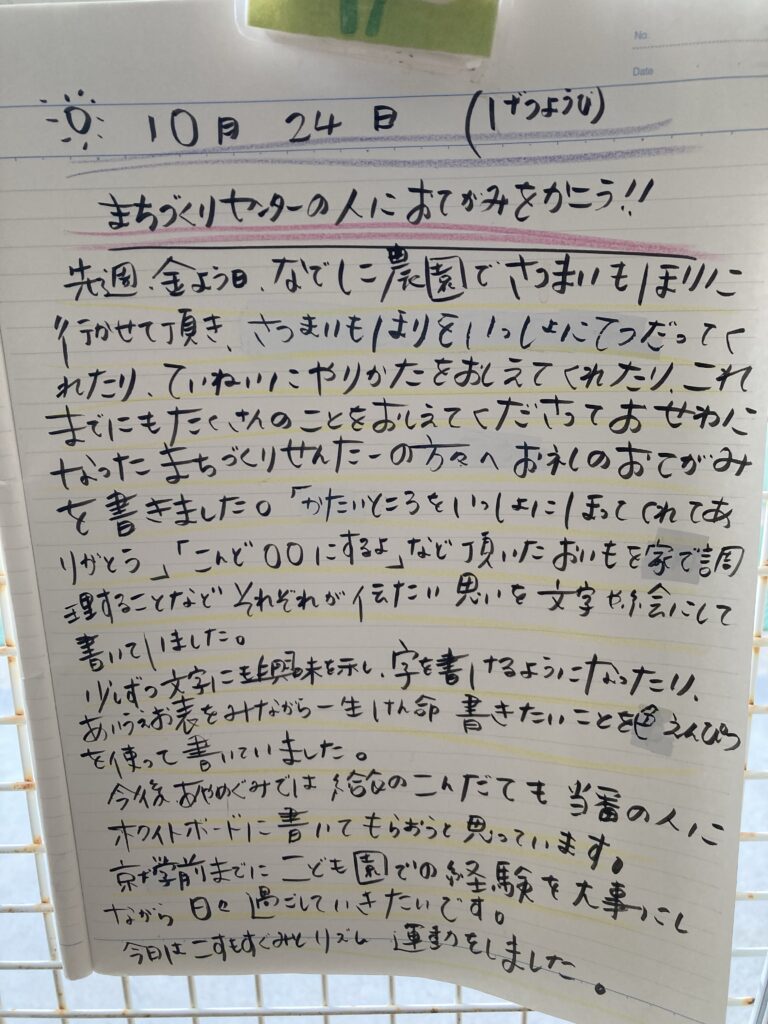 No.
Date
10月 24日 (げつようび)
まちづくりセンターの人におてがみをかこう!!
先週、金よう日、なでしこ農園でさつまいもほりに
行かせて頂き、さつまいもほりをいっしょにてつだってく
れたり、ていねいにやりかたをおしえてくれたり、これ
までにもたくさんのことをおしえてくださっておせわに
なったまちづくりせんたーの方々へお礼のおてがみ
を書きました。「かたいところをいっしょにほってくれてあ
りがとう」「こんど〇〇にするよ」など頂いたおいもを家で調
理することなどそれぞれが伝たい思いを文字や絵にして
書いていました。
少しずつ文字にも興味を示し、字を書けるようになったり、
あいうえお表をみながら一生けん命書きたいことを色えんぴつ
を使って書いていました。
今後あやめぐみでは給食のこんだても当番の人に
ホワイトボードに書いてもらおうと思っています。
就学前までにこども園での経験を大事にし
ながら日々過ごしていきたいです。
今日はこすもすぐみとリズム運動をしました。